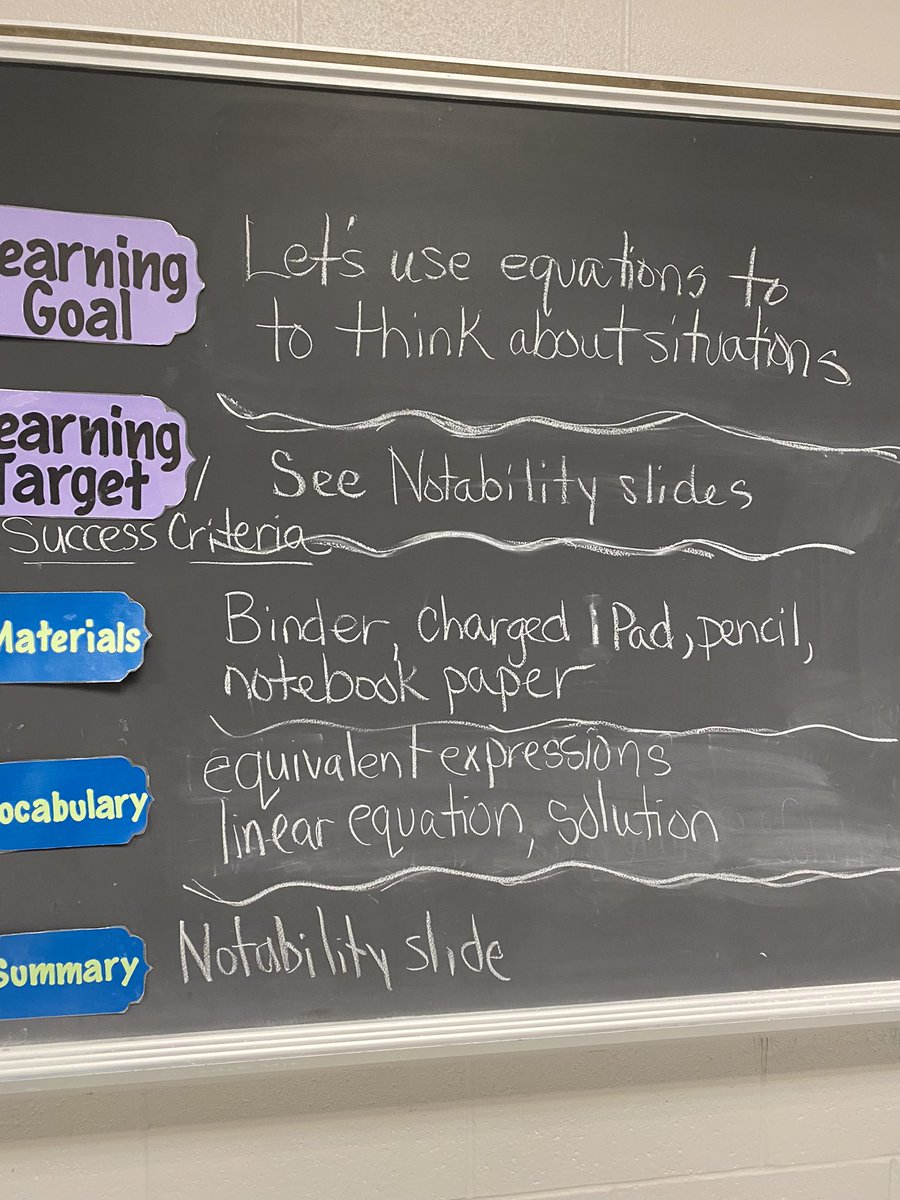 earning
Goal
Let's use equations to
to think about situations
earning
Target
/ See Notability slides
Success Criteria
Materials
Binder, charged iPad, pencil,
notebook paper
ocabulary
equivalent expressions
linear equation, solution
Summary
Notability slide